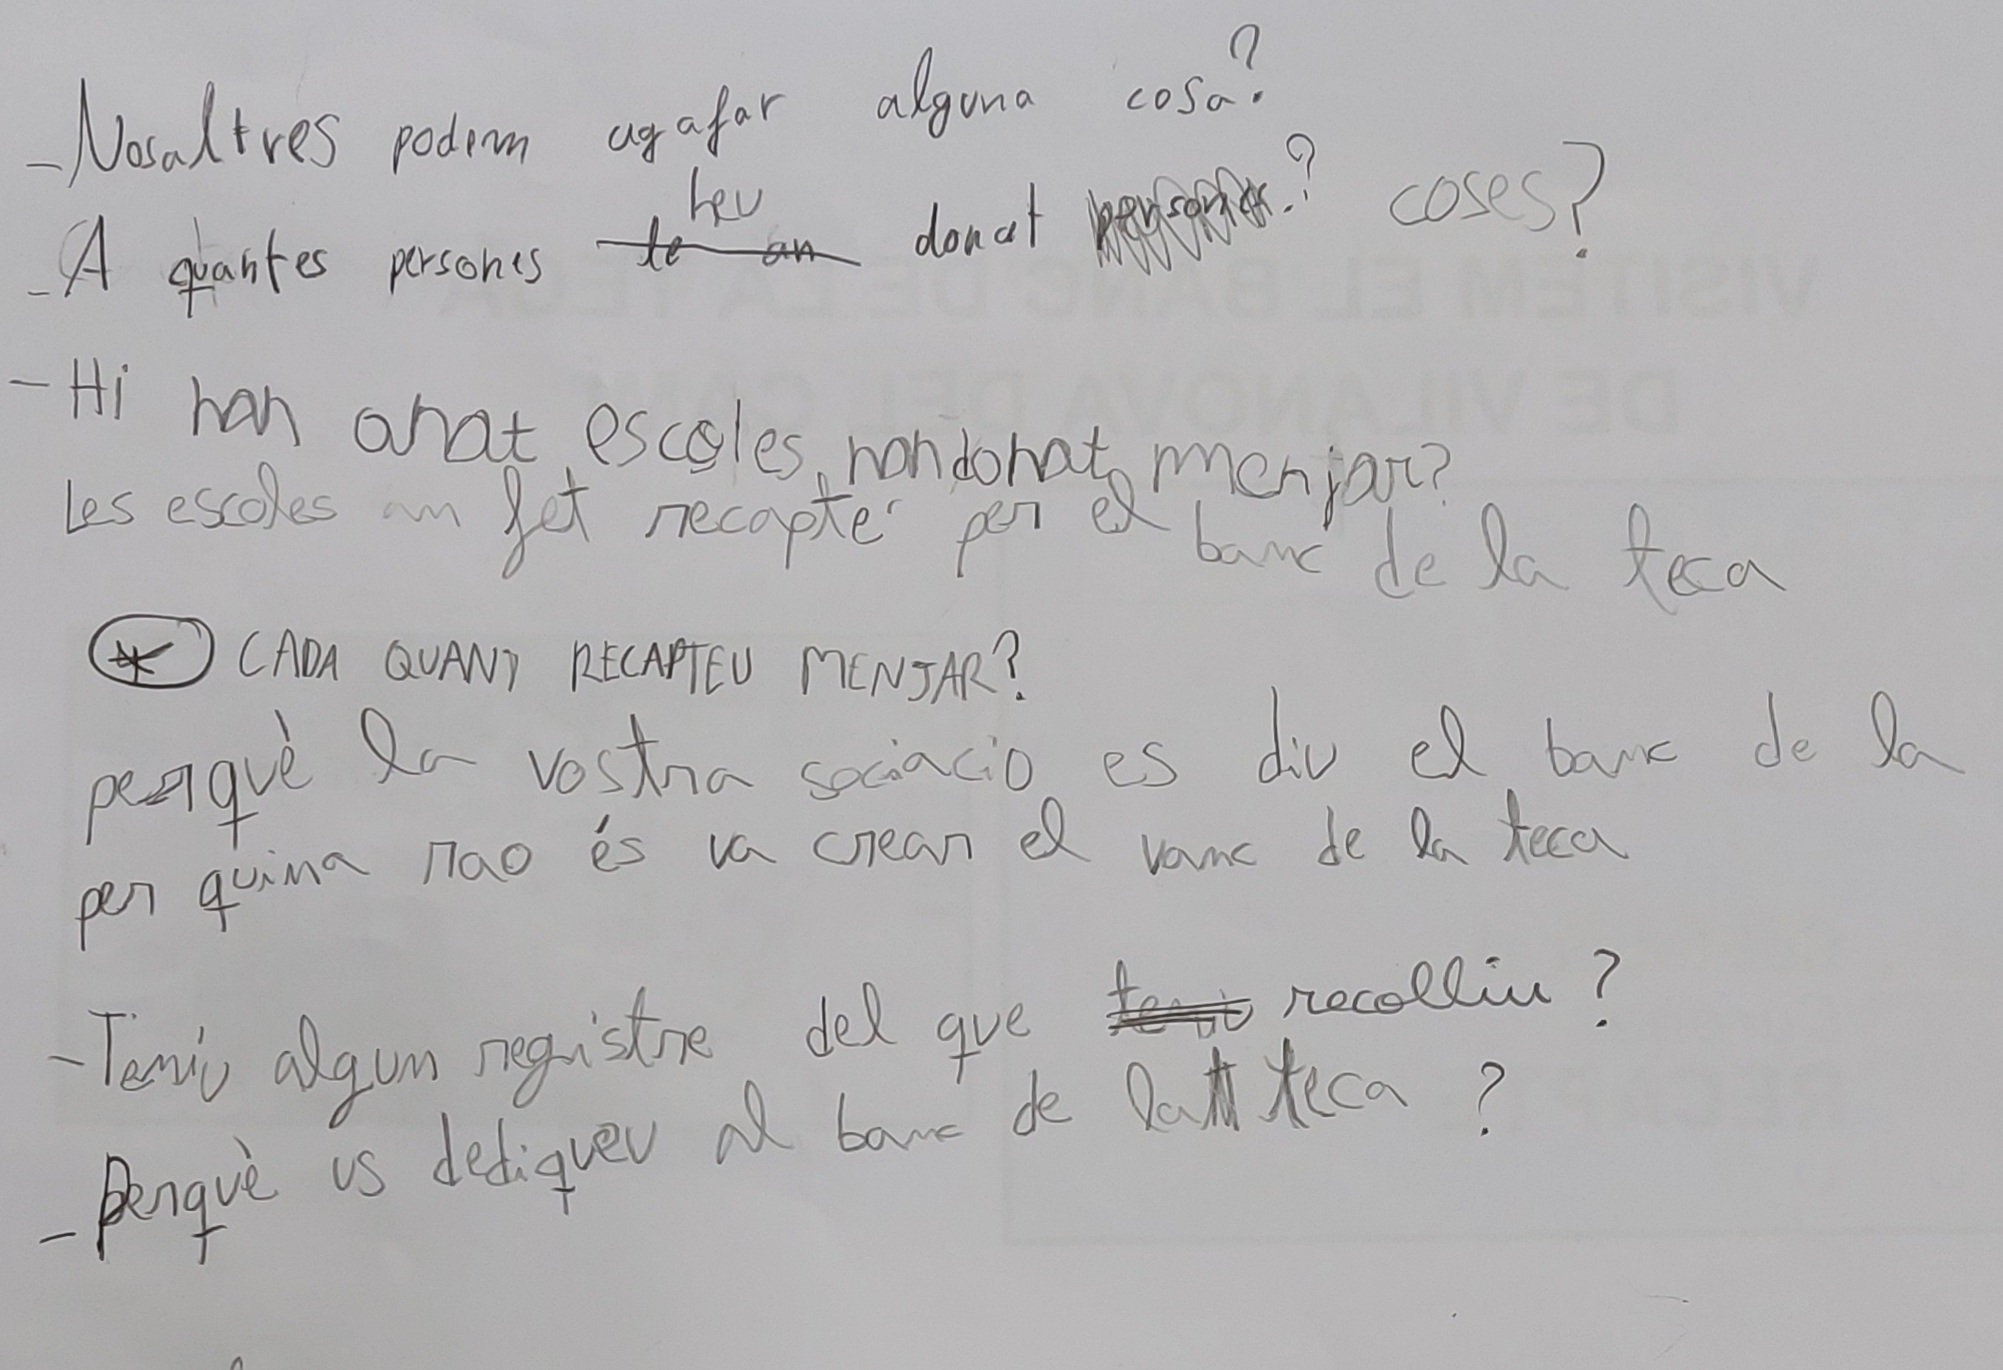 - Nosaltres podem agafar alguna cosa?
- A quantes persones heu donat coses?
- Hi han anat escoles, han donat menjar?
Les escoles an fet recapte per el banc de la teca
* CADA QUANT RECAPTEU MENJAR?
perquè la vostra sociacio es diu el banc de la
per quina rao és va crear el vanc de la teca
- Teniu algun registre del que recolliu?
- Perquè us dediqueu al banc de la teca?
VISITEM EL BANC DE LA TECA
DE VILANOVA DEL CAMÍ